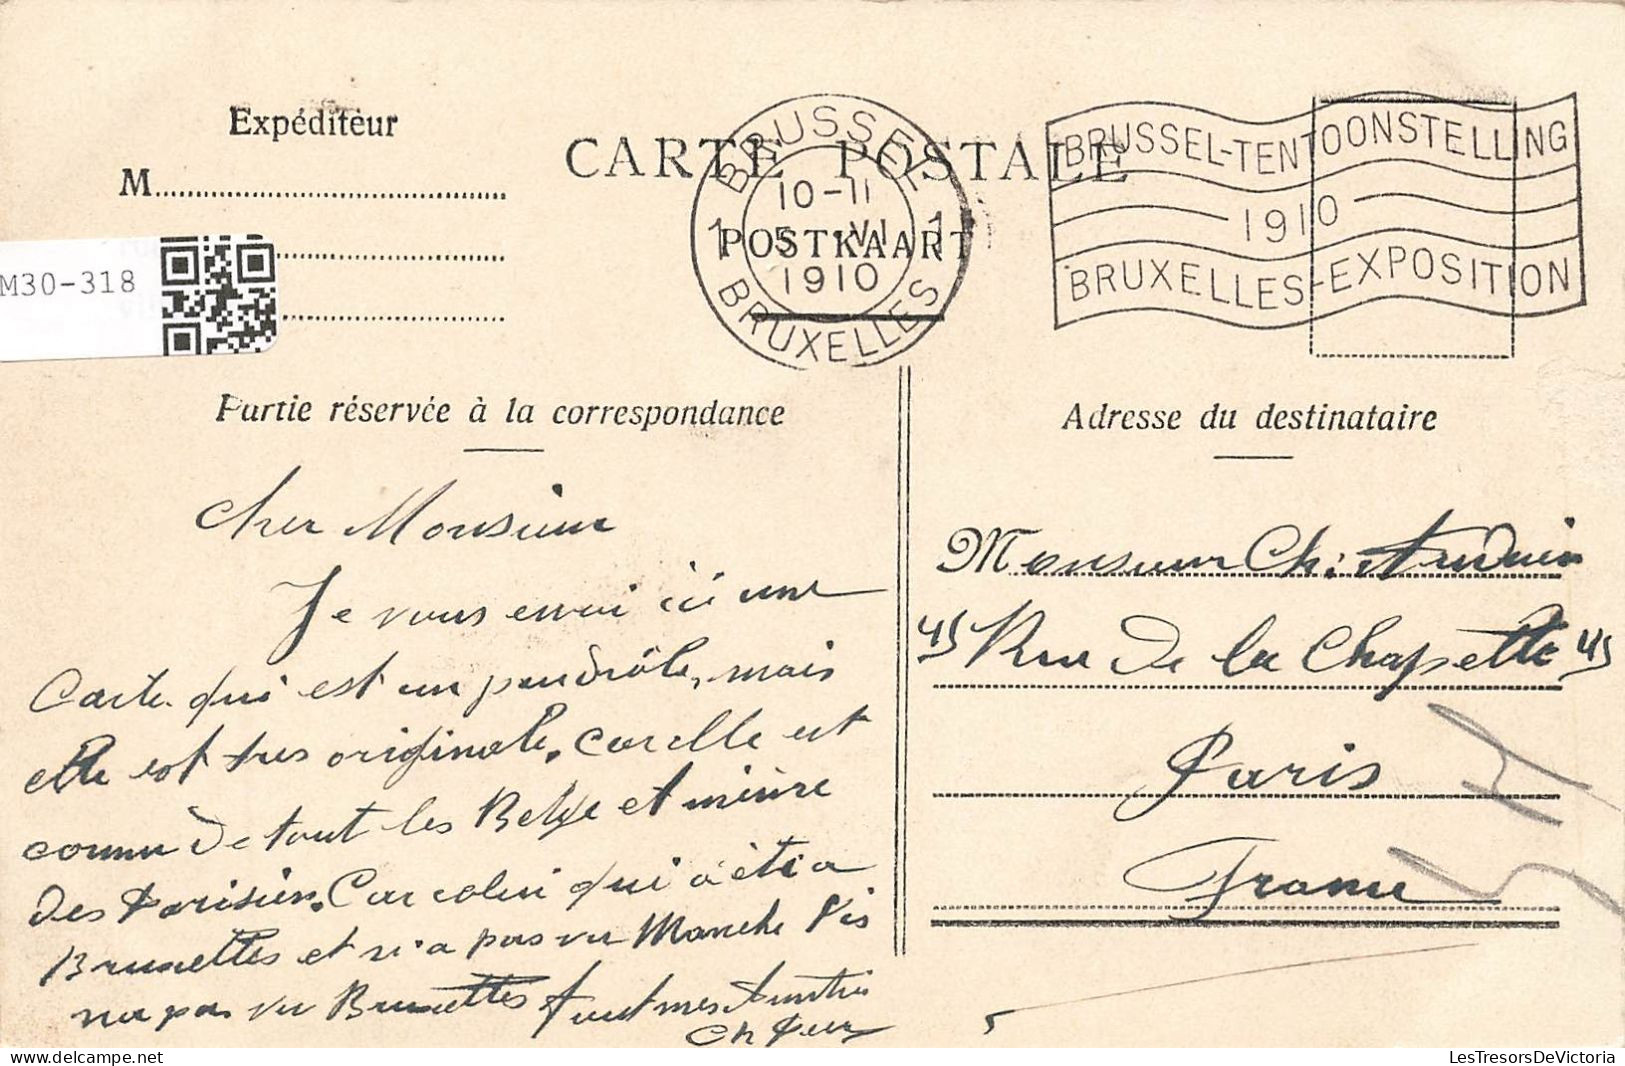 Expéditeur
M
CARTE POSTALE
POSTKAART
BRUSSEL
1 1
10-11
5 -VI
1910
BRUXELLES
BRUSSEL-TENTOONSTELLING
1910
BRUXELLES-EXPOSITION
M30-318
Partie réservée à la correspondance
Cher Monsieur
Je vous envoi ici une
Carte qui est un peu drôle, mais
elle est tres originale. Car elle est
connu de tout les Belge et même
des Parisien. Car celui qui a été a
Bruxelles et n'a pas vu Manneke Pis
n'a pas vu Bruxelles tout mes
Ch
Adresse du destinataire
Monsieur Ch: Audouin
45 Rue de la Chapelle 45
Paris
France
LesTresorsDeVictoria